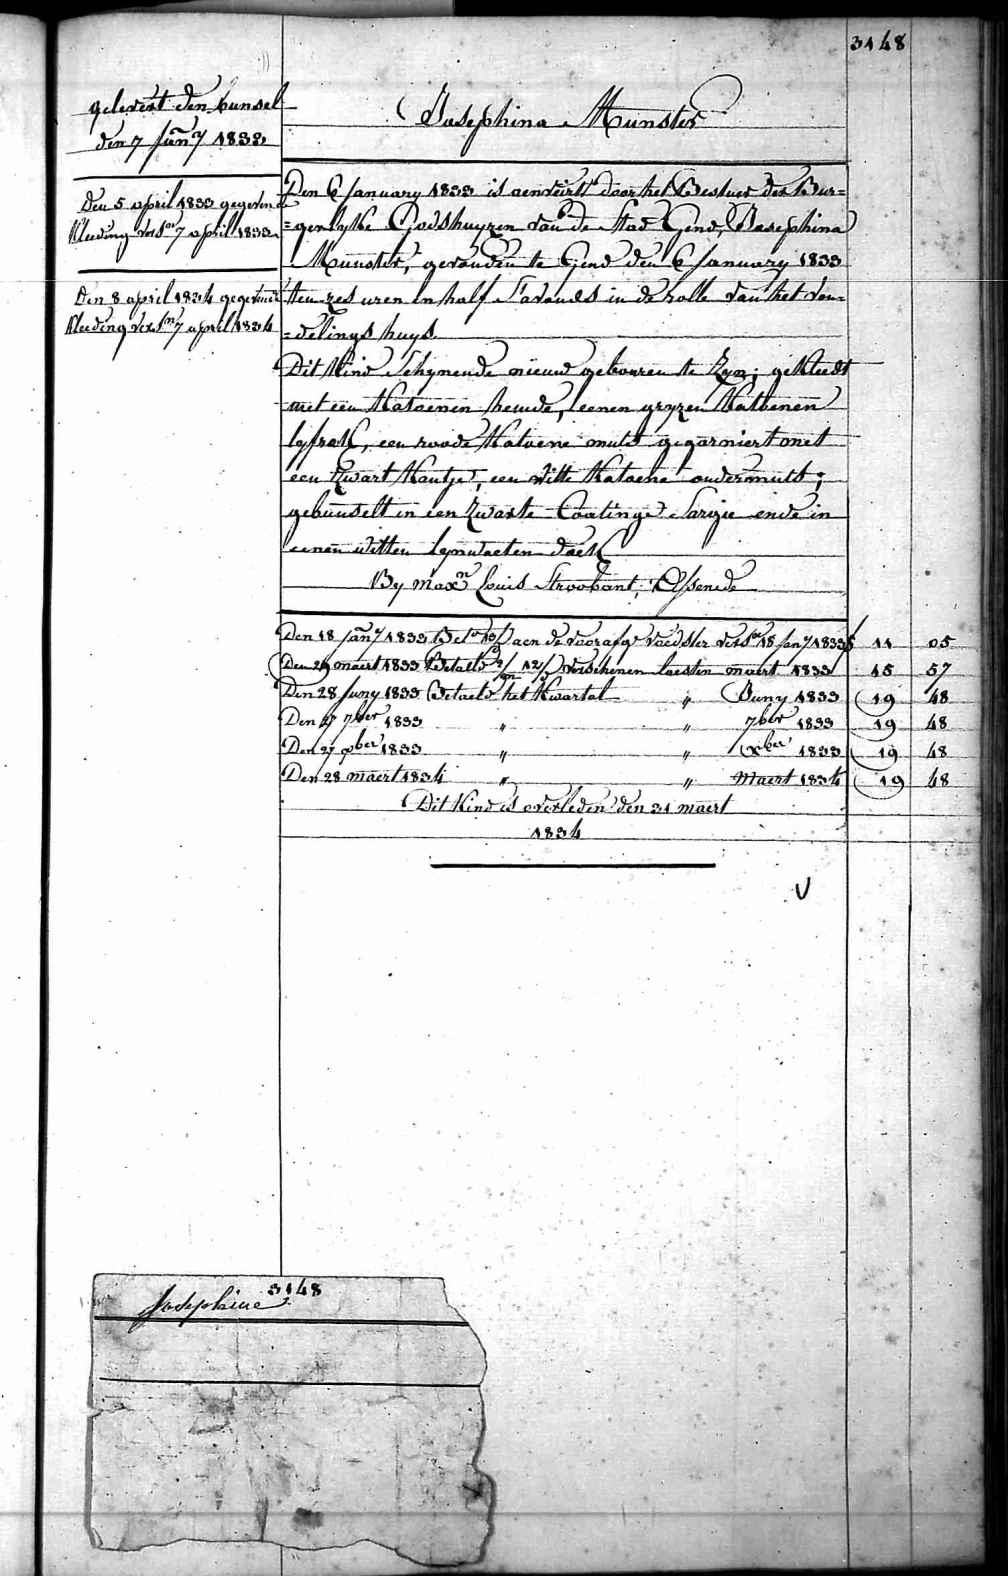 3148
gelevert den bunsel
den 7 Jan̄y 1833
Den 5 april 1833 gegeven
kleeding vers.en 7 april 1833
Den 8 april 1834 gegeven
kleeding vers.en 7 april 1834
Josephina Munster
Den 6 January 1833 is aenveirt door het Bestuer der Bur=
=gerlyke Godshuyzen van de Stad Gend, Josephina
Munster, gevonden te Gend den 6 January 1833
ten zes uren en half s'avonds in de rolle van het von=
=delings huys.
Dit kind schynende nieuw gebooren te zyn; gekleedt
met een katoenen hemde, eenen gryzen kattoenen
lyfrok, een roode katoene muts gegarniert met
een zwart kantje, een witte katoene ondermuts;
gebunselt in een zwarte Coatinge sargie ende in
eenen witten lynwaeten doek
By max.n Louis Stroobant, Assenede
Den 18 Jan̄y 1833 aen de voorafge voedster vers.en 18 Jan̄y 1833 11 05
Den 29 maert 1833 Betaelt verschenen laesten maert 1833 15 57
Den 28 Juny 1833 Betaelt het kwartal " Juny 1833 19 48
Den 27 7ber 1833 " " 7ber 1833 19 48
Den 27 xber 1833 " " xber 1833 19 48
Den 28 maert 1834 " " Maert 1834 19 48
Dit kind is overleden den 31 maert
1834
3148
Josephine